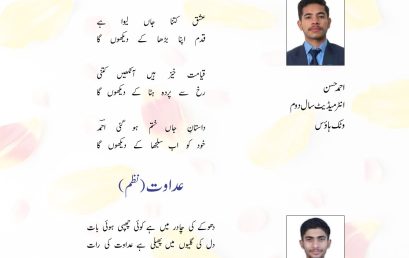 عشق کتنا جاں لیوا ہے
قدم اپنا بڑھا کے دیکھوں گا
قیامت خیز ہیں آنکھیں کتنی
رخ سے پردہ ہٹا کے دیکھوں گا
داستان جاں ختم ہو گئی احمدؔ
خود کو اب سلجھا کے دیکھوں گا
احمد حسن
انٹرمیڈیٹ سال دوم
ونگ ہاؤس
عداوت (نظم)
دھوکے کی چادر میں ہے کوئی چھپی ہوئی بات
دل کی گلیوں میں پھیلی ہے عداوت کی رات